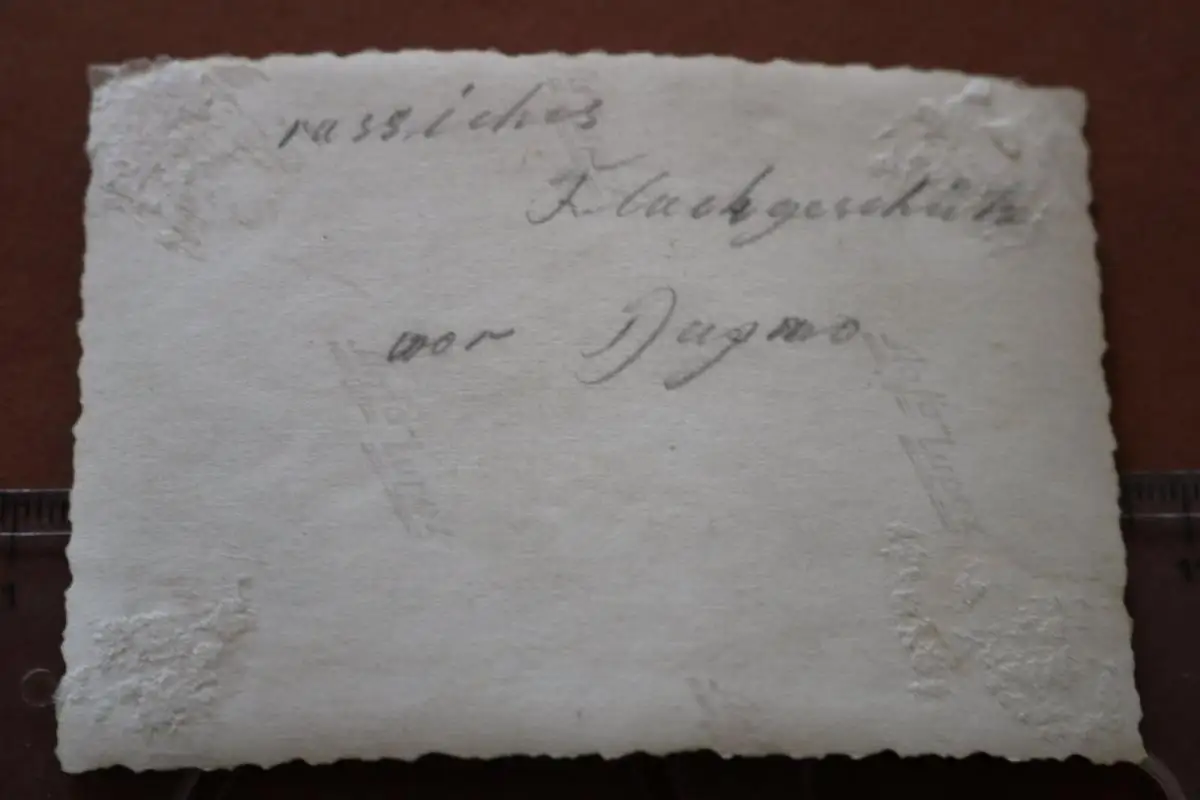 rassiches
Flackgeschütz
vor Dugmo